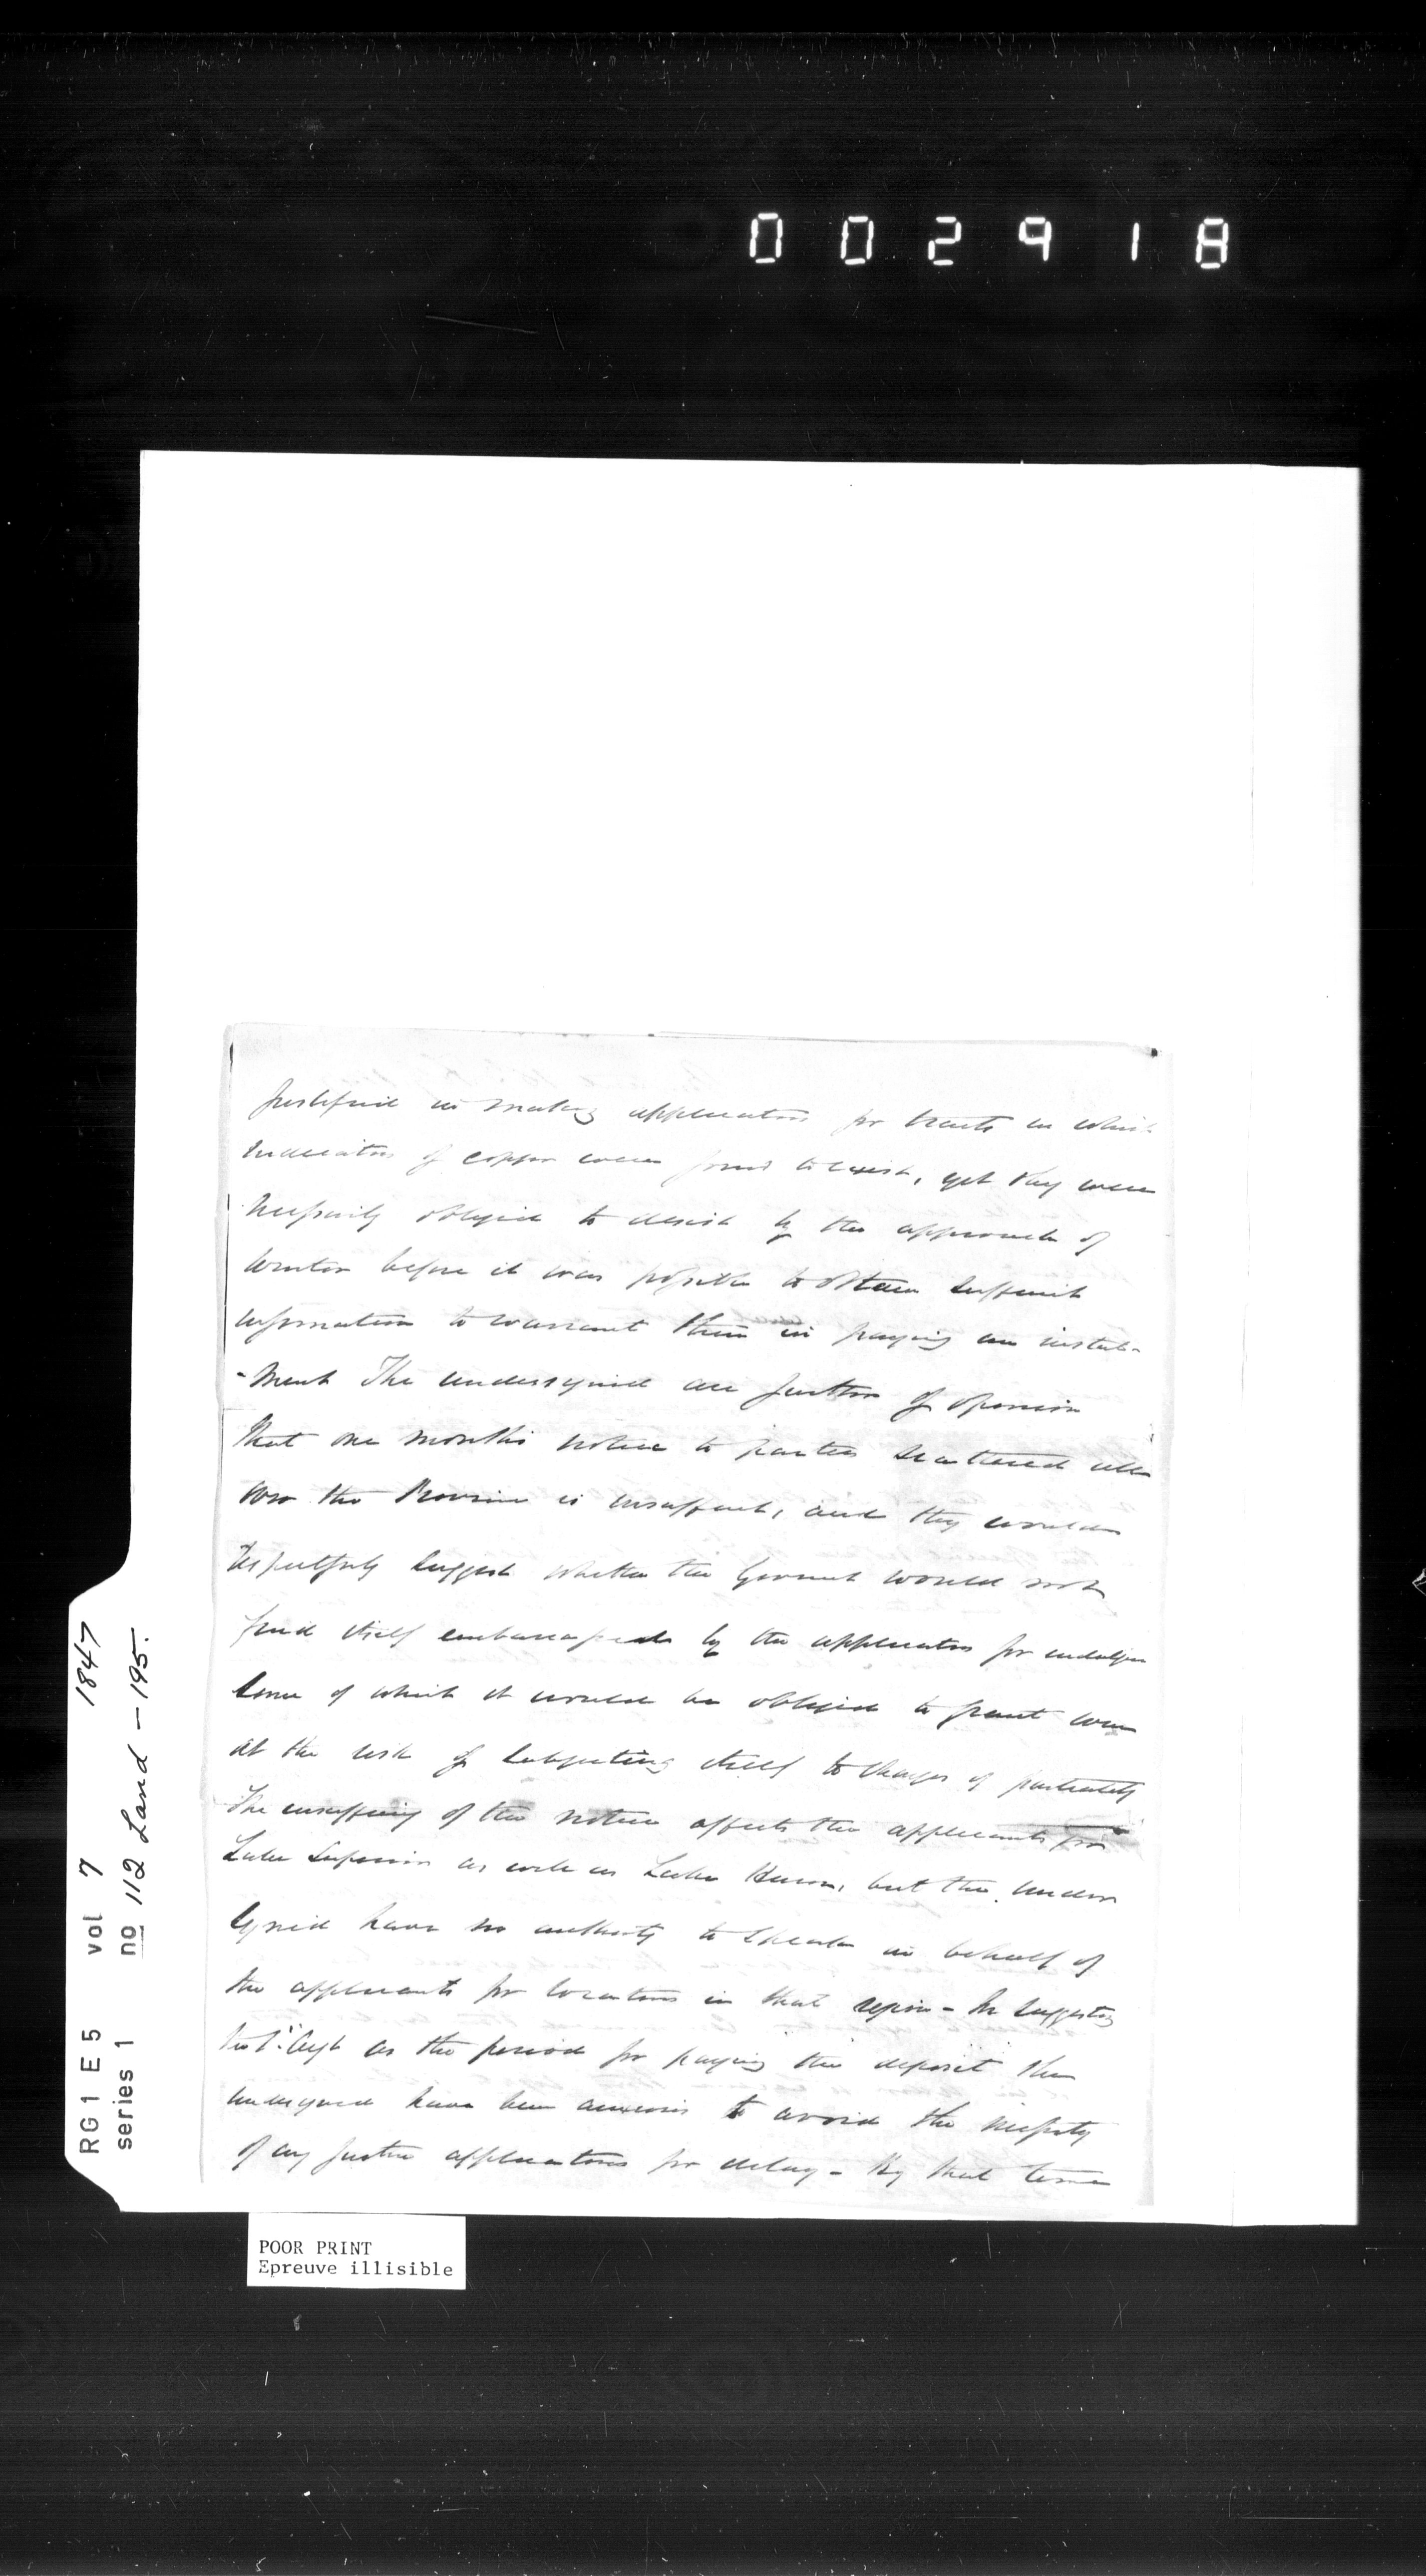 002918
justified in making application for tracts in which
indications of copper were found to exist, yet they were
necessarily obliged to desist by the approach of
Winter before it was possible to obtain sufficient
information to warrant them in paying an instal-
-ment The undersigned are further of opinion
that one months notice to parties scattered all
over the Province is insufficient, and they would
respectfully suggest whether the Government would not
find itself embarrassed by the applications for indulgence
some of which it would be obliged to grant even
at the risk of subjecting itself to charges of partiality
The insufficiency of the notice affects the applicants for
Lake Superior as well as Lake Huron, but the under
signed have no authority to speak in behalf of
the applicants for locations in that region - In suggesting
the 1st Augt as the period for paying the deposit the
undersigned have been anxious to avoid the necessity
of any further applications for delay - By that time
RG 1 E 5 vol 7 1847
series 1 no 112 Land - 195.
POOR PRINT
Epreuve illisible